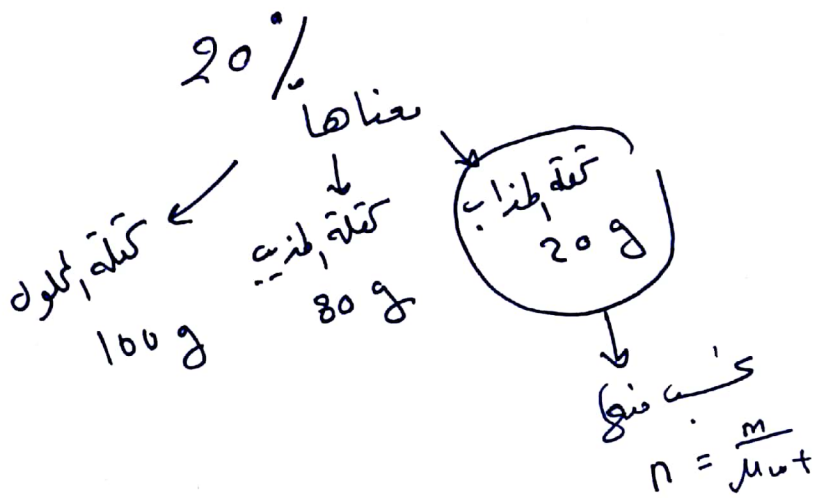 20%
معناها
كتلة المذاب
20 g
كتلة المذيب
80 g
كتلة المحلول
100 g
نحسب منها
n = m / Mwt